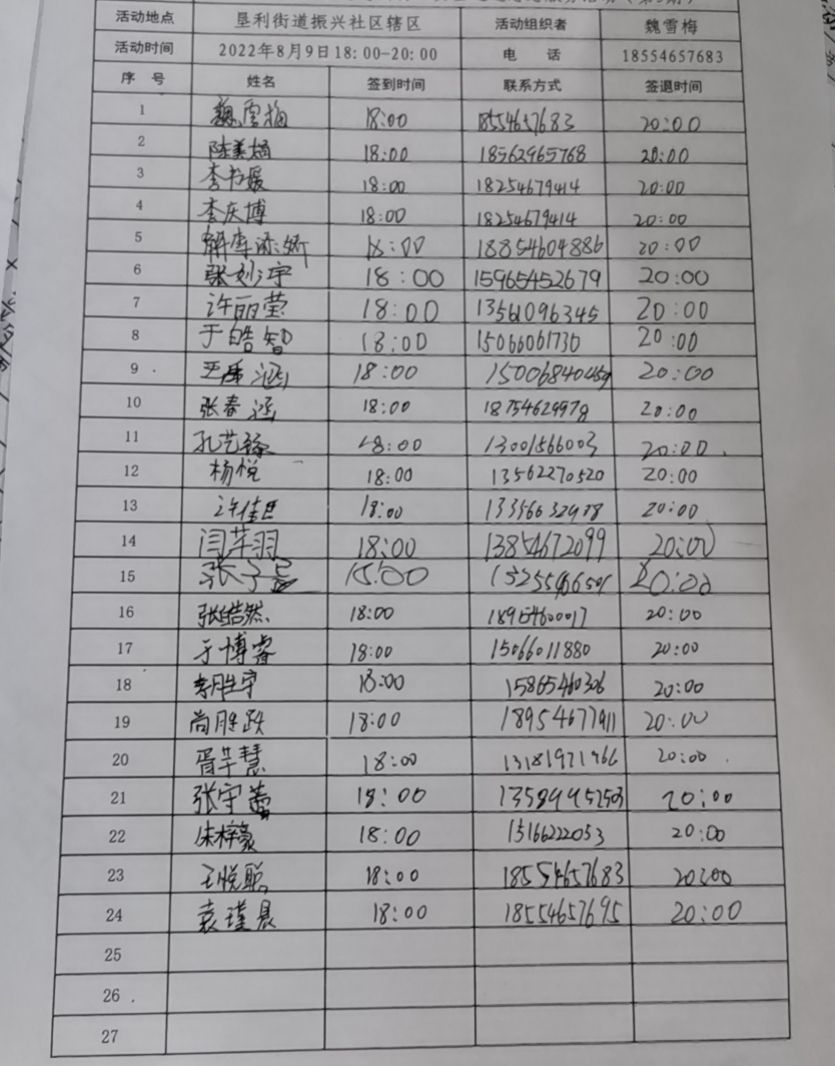 活动地点 垦利街道振兴社区辖区 活动组织者 魏雪梅
活动时间 2022年8月9日18:00-20:00 电 话 18554657683
序 号 姓名 签到时间 联系方式 签退时间
1 魏雪梅 18:00 18554657683 20:00
2 陈美娟 18:00 18562965768 20:00
3 李书媛 18:00 18254679414 20:00
4 李庆博 18:00 18254679414 20:00
5 18:00 18854604886 20:00
6 张刘宇 18:00 15965452679 20:00
7 许丽莹 18:00 13561096345 20:00
8 于皓智 18:00 15066061730 20:00
9 18:00 20:00
10 张春涵 18:00 18754629978 20:00
11 孔艺臻 18:00 13001566003 20:00
12 杨悦 18:00 13562270520 20:00
13 18:00 20:00
14 闫芊羽 18:00 13854672099 20:00
15 20:00
16 张皓然 18:00 20:00
17 于博睿 18:00 15066011880 20:00
18 李胜宇 18:00 15865460306 20:00
19 尚胜跃 18:00 18954677911 20:00
20 胥芊慧 18:00 20:00
21 18:00 20:00
22 朱梓豪 18:00 15166222053 20:00
23 王悦聪 18:00 18554657683 20:00
24 袁瑾晨 18:00 18554657695 20:00
25
26
27